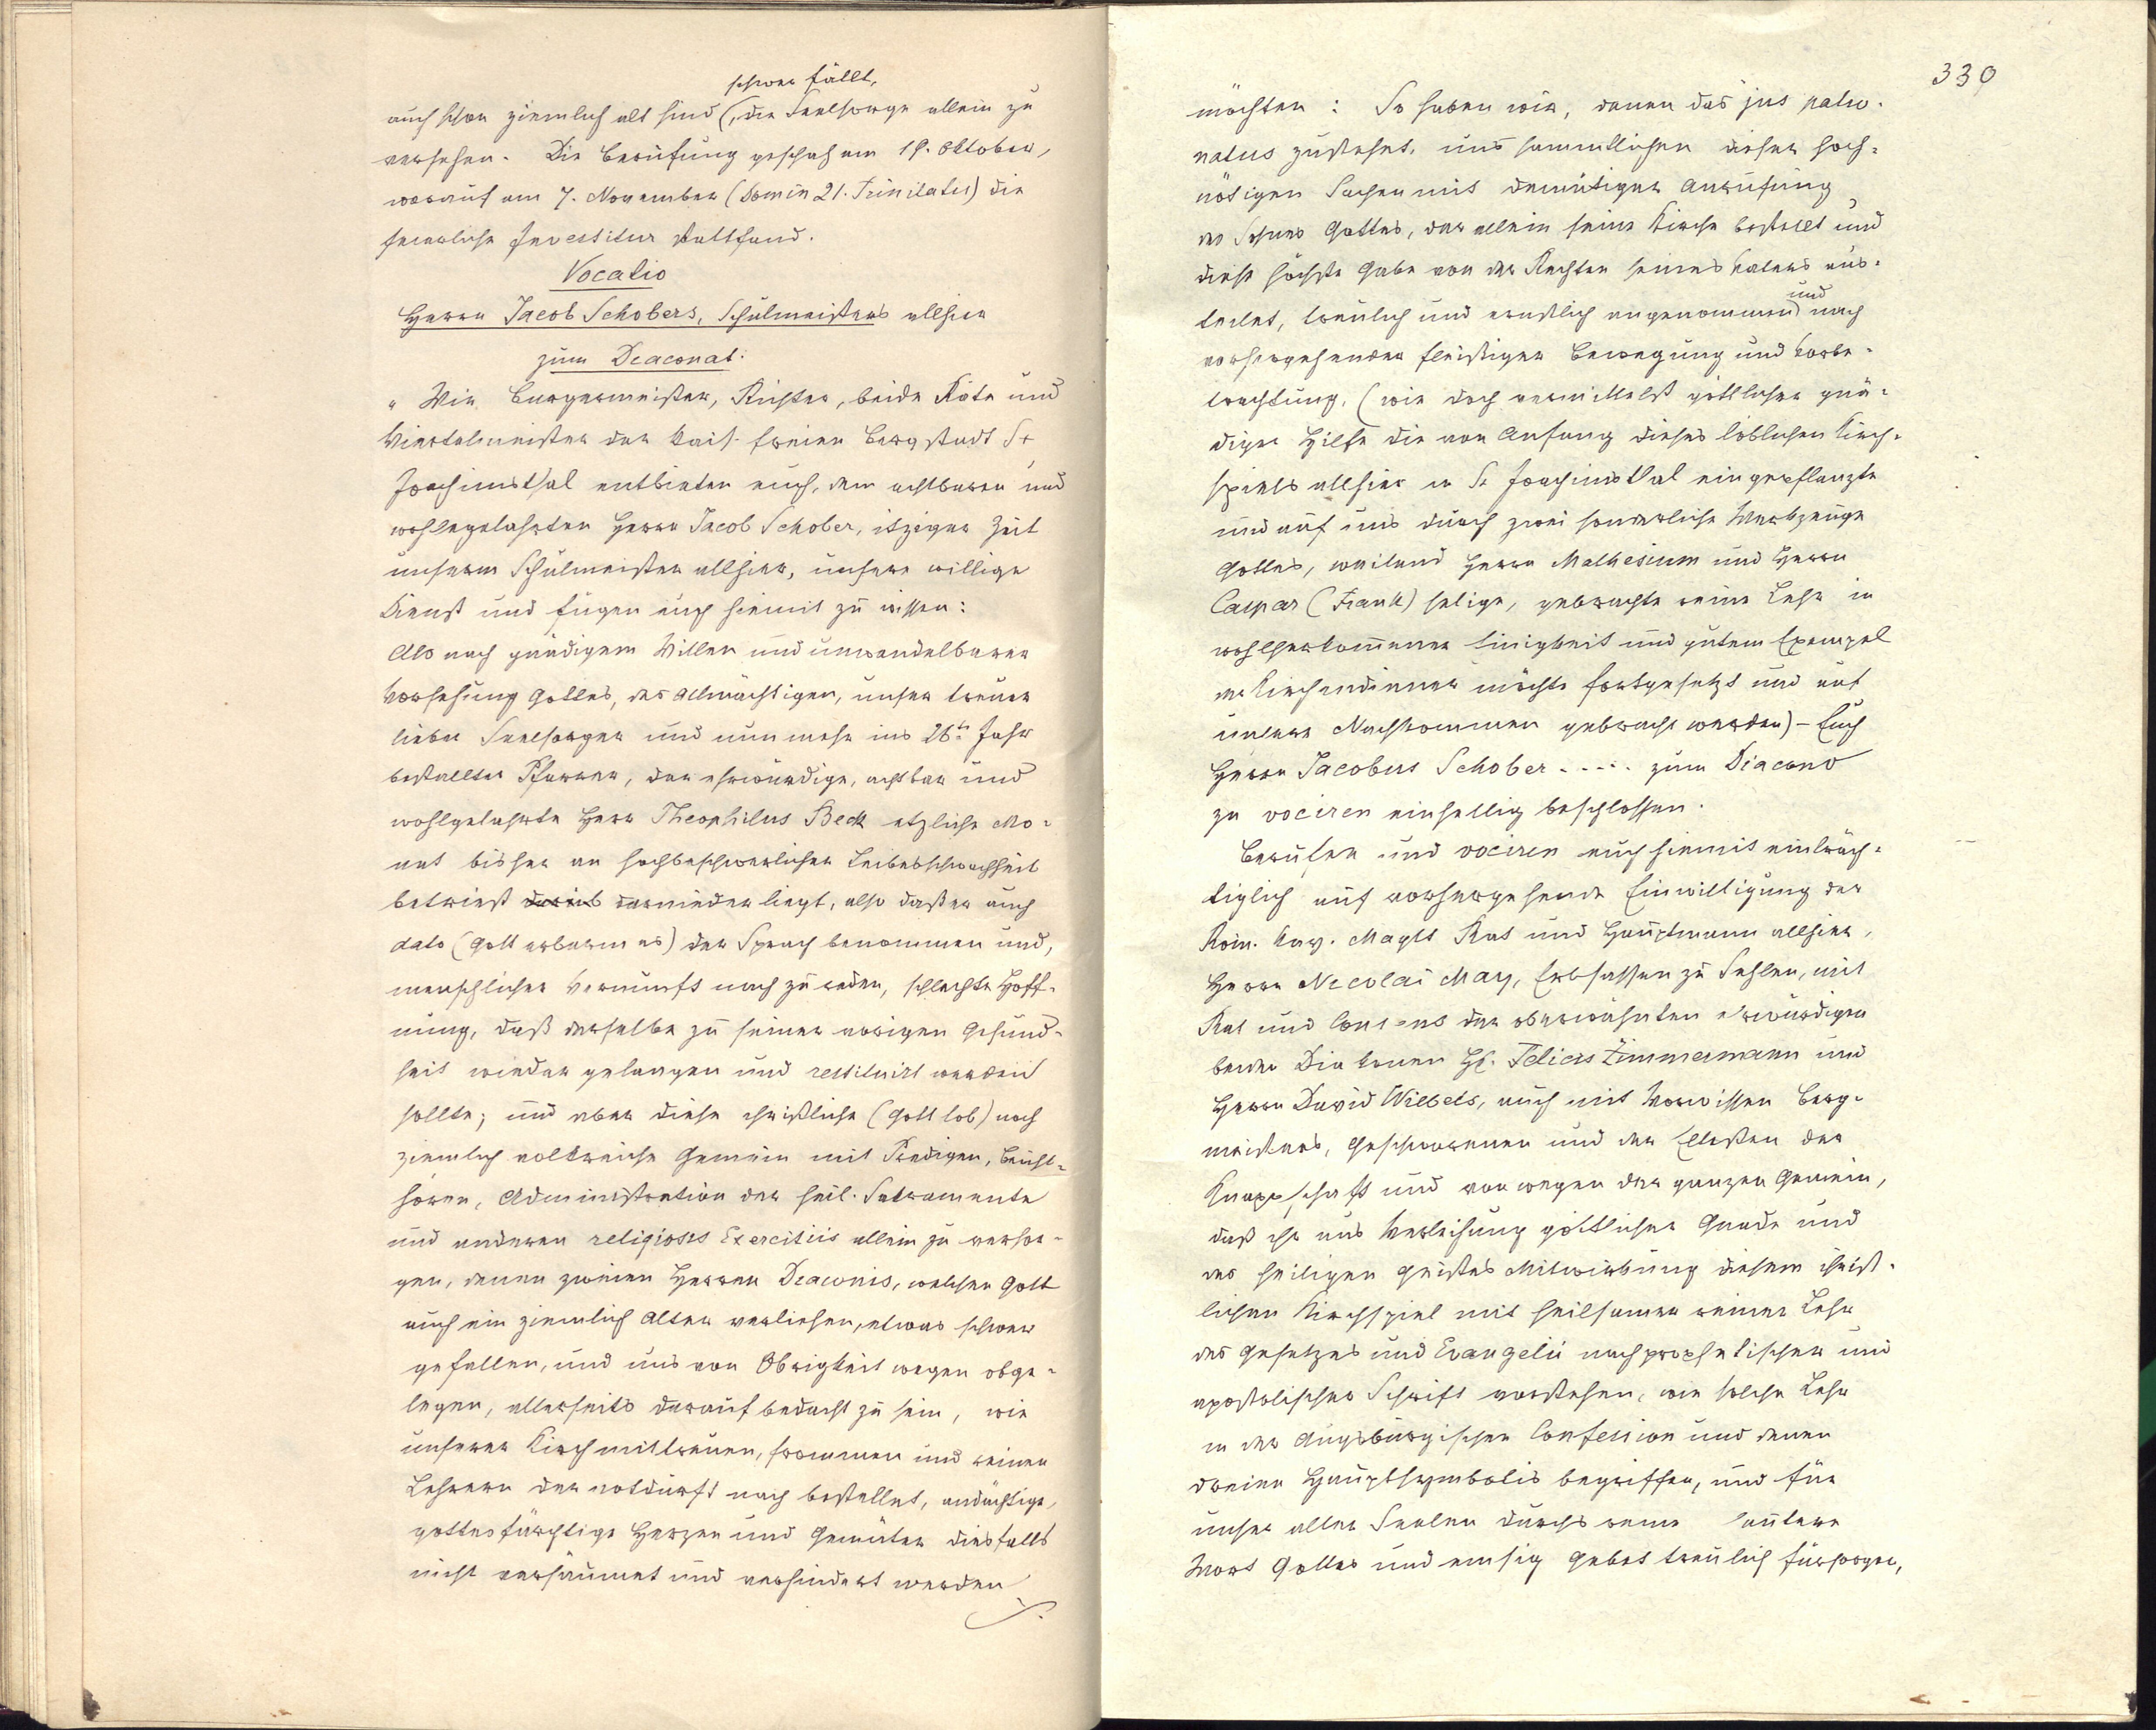 schwer fällt,
auch schon ziemlich alt sind (, die Seelsorge allein zu
versehen. Die Berufung geschah am 19. Oktober,
worauf am 7. November (Domin 21. Trinitatis) die
feierliche Investitur stattfand.
Vocatio
Herrn Jacob Schobers, Schulmeisters allhier
zum Diaconat.
„Wir Burgermeister, Richter, beide Räte und
Viertelmeister der kais. freien Bergstadt St
Joachimsthal entbieten euch, dem achtbaren und
wohlgelahrten Herrn Jacob Schober, itziger Zeit
unserm Schulmeister allhier, unsere willige
Dienst und fügen euch hiemit zu wissen:
Als nach gnädigem Willen und unwandelbarer
Vorsehung Gottes, des Allmächtigen, unser treuer
lieber Seelsorger und nunmehr ins 26te Jahr
bestallter Pfarrer, der ehrwürdige, achtbar und
wohlgelahrte Herr Theophilus Beck etzliche Mo-
nat bisher an hochbeschwerlicher Leibesschwachheit
betriest darnieder liegt, also daß er auch
dato (Gott erbarm es) der Sprach benommen und,
menschlicher Vernunft nach zu reden, schlechte Hoff-
nung, daß derselbe zu seiner vorigen Gesund-
heit wieder gelangen und restituirt werden
sollte; und aber diese christliche (Gott lob) noch
ziemlich volkreiche Gemein mit Predigen, Beicht-
hören, Administration der heil. Sakramente
und anderen religiosis Exercitiis allein zu versor-
gen, denen zweien Herren Diaconis, welchen Gott
auch ein ziemlich Alter verliehen, etwas schwer
gefallen, und uns von Obrigkeit wegen obge-
legen, allerseits darauf bedacht zu sein, wie
unserer Kirch mit treuen, frommen und reinen
Lehrern der notdurft nach bestellet, andächtige,
gottesfürchtige Herzen und Gemüter diesfalls
nicht versäumet und verhindert werden
./.
330
möchten: So haben wir, denen das jus patro-
natus zustehet, uns sammtlichen dieser hoch-
nötigen Sachen mit demütiger Anrufung
des Sohnes Gottes, der allein seine Kirche bestellt und
diese höchste Gabe von der Rechten seines Vaters aus-
und
teilet, treulich und ernstlich angenommen) nach
vorhergehender fleißiger Bewegung und Vorbe-
trachtung, (wie doch vermittelst göttlicher gnä-
diger Hilfe die von Anfang dieses löblichen Kirch-
spiels allhier in St Joachimsthal eingepflanzte
und auf uns durch zwei sonderliche Werkzeuge
Gottes, weiland Herrn Mathesium und Herrn
Caspar (Frank) selige, gebrachte reine Lehr in
wohlherkommener Einigkeit und gutem Exempel
der Kirchendiener möchte fortgesetzt und auf
unsere Nachkommen gebracht werden) – Euch
Herrn Jacobus Schober ..... zum Diacono
zu vociren einhellig beschlossen.
Berufen und vociren euch hiemit einträch-
tiglich auf vorhergehende Einwilligung der
Röm. Kay. Maytt Rat und Hauptmann allhier,
Herrn Nicolai May, Erbsassen zu Sehlen, mit
Rat und Consens der oberwähnten ehrwürdigen
beider Diakonen H. Felicis Zimmermann und
Herrn David Wiebels, auch mit Vorwissen Berg-
meisters, Geschworenen und der Eltesten der
Knappschaft und von wegen der ganzen Gemein,
daß ihr aus Verleihung göttlicher Gnade und
des heiligen Geistes Mitwirkung diesem christ-
lichen Kirchspiel mit heilsamer reiner Lehr
des Gesetzes und Evangelii nach prophetischer und
apostolischer Schrift vorstehen, wie solche Lehr
in der Augsburgischen Confession und denen
dreien Hauptsymbolis begriffen, und für
unser aller Seelen durchs reine lautere
Wort Gottes und emsig Gebet treulich fürsorgen,